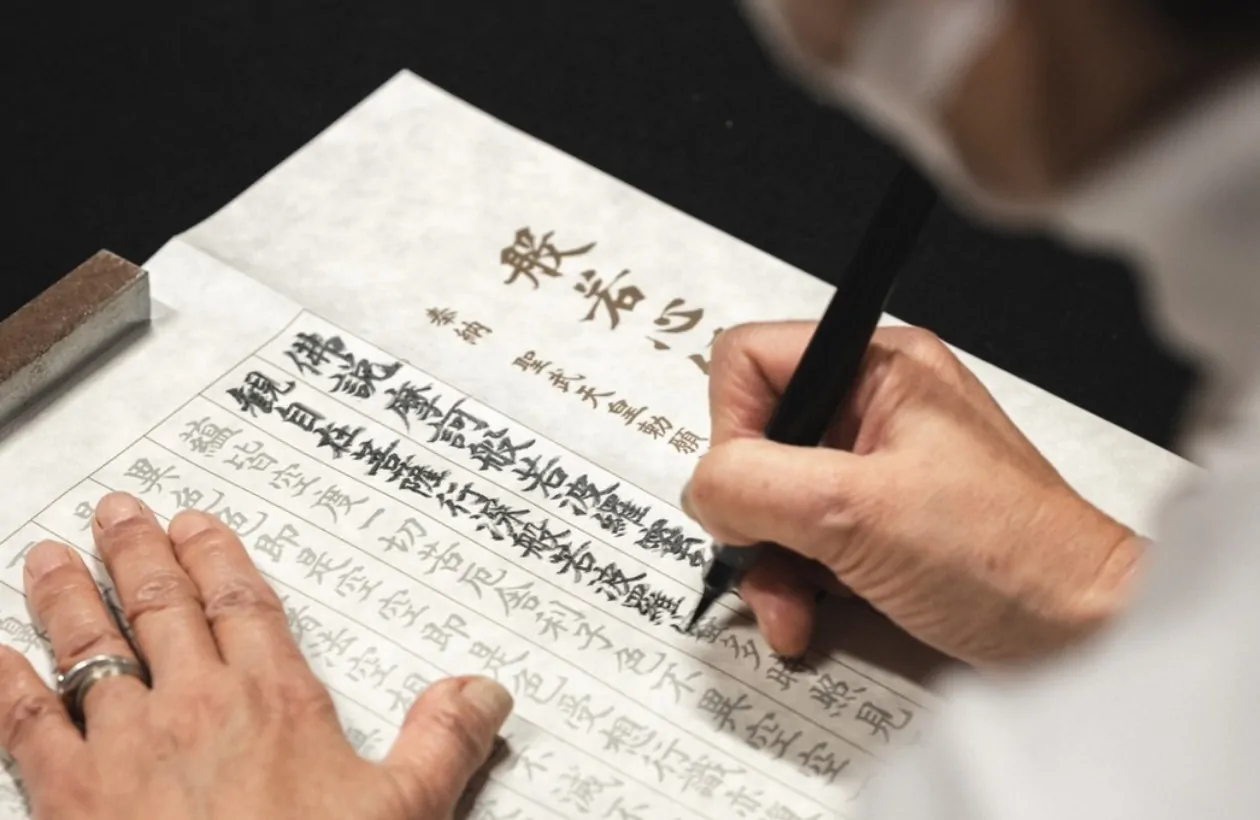 般若心
奉納 聖武天皇勅願
佛説摩訶般若波羅蜜
観自在菩薩行深般若波羅蜜多時照見
蘊皆空度一切苦厄舎利子色不異空空
異色色即是空空即是色受想行識亦復
是 法空相 不滅不